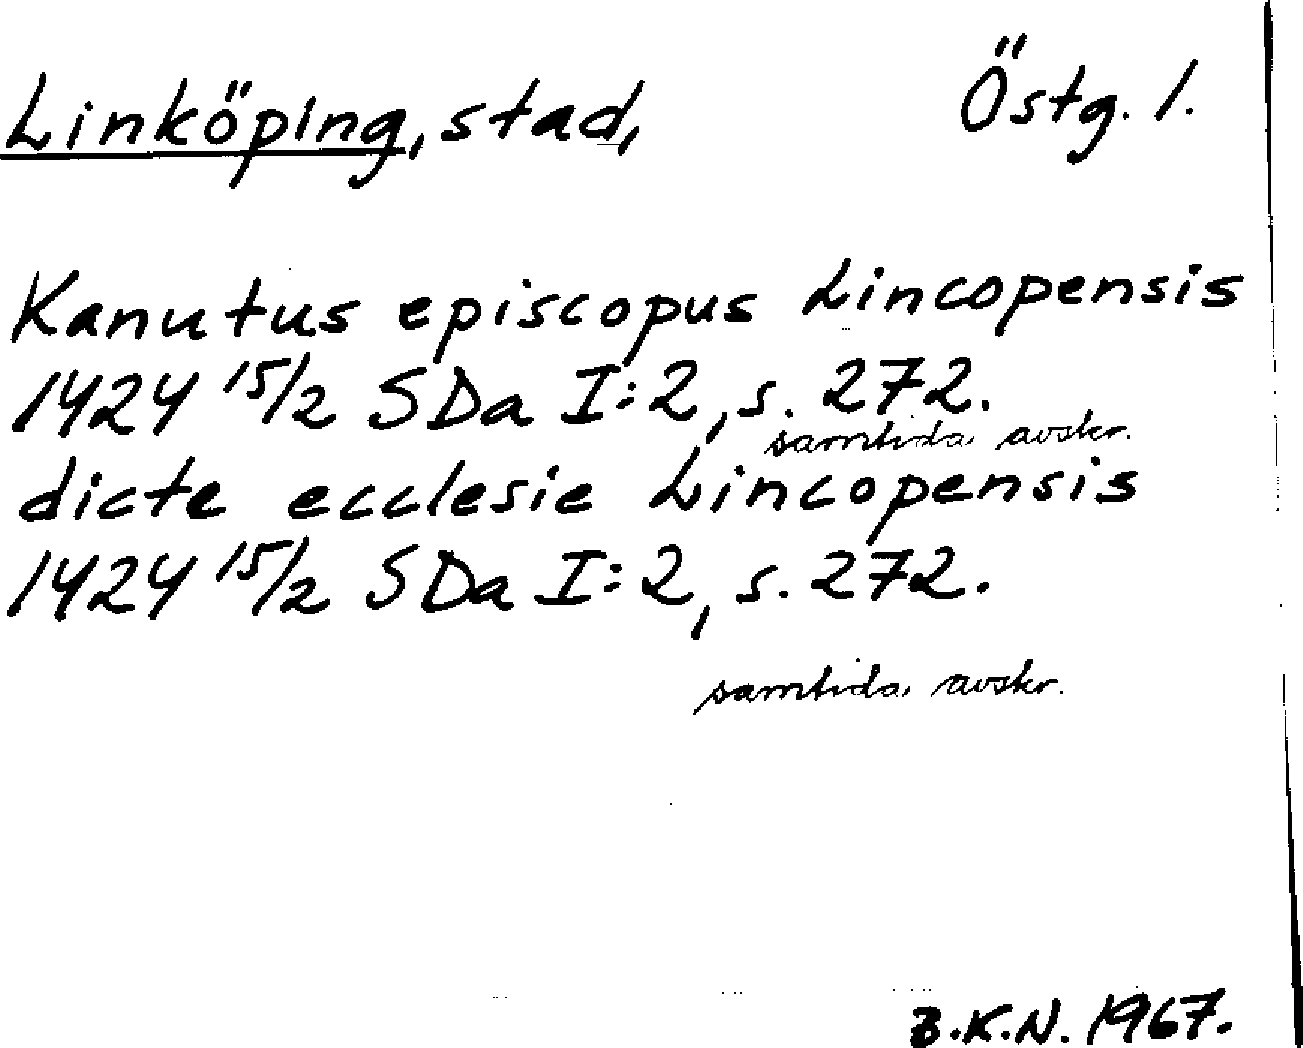 Linköping, stad, Östg. 1.
Kanutus episcopus Lincopensis
1424 15/2 SDa I:2, s. 272.
samtida avskr.
dicte ecclesie Lincopensis
1424 15/2 SDa I:2, s. 272.
samtida avskr.
B.K.N. 1967.